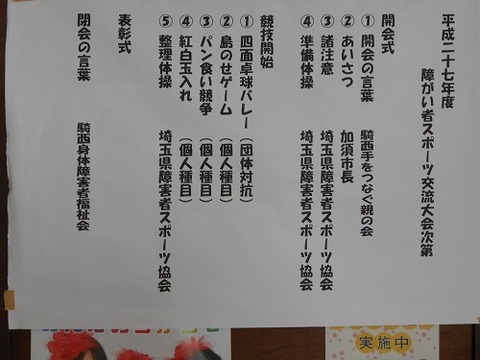 平成二十七年度
障がい者スポーツ交流大会次第
開会式
① 開会の言葉 騎西手をつなぐ親の会
② あいさつ 加須市長
③ 諸注意 埼玉県障害者スポーツ協会
④ 準備体操 埼玉県障害者スポーツ協会
競技開始
① 四面卓球バレー (団体対抗)
② 島のせゲーム (個人種目)
③ パン食い競争 (個人種目)
④ 紅白玉入れ (個人種目)
⑤ 整理体操 埼玉県障害者スポーツ協会
表彰式
閉会の言葉 騎西身体障害者福祉会
実施中